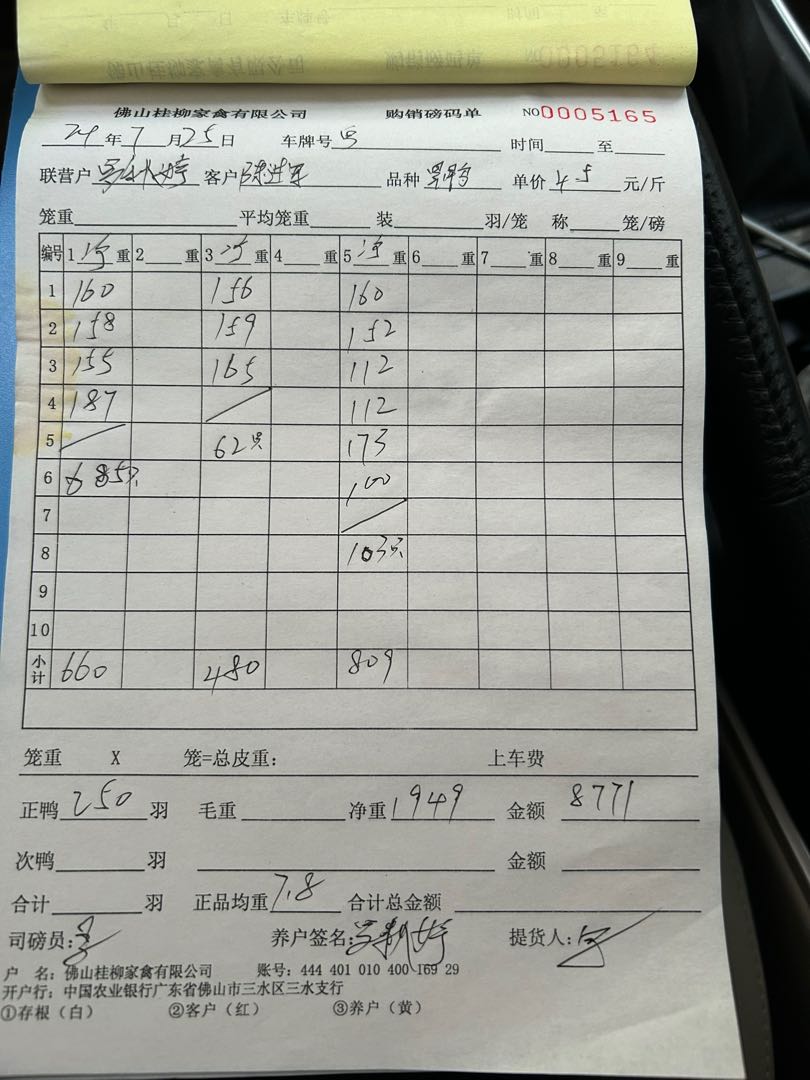 佛山桂柳家禽有限公司 购销磅码单 NO0005165
24年7月25日 车牌号 时间 至
联营户 客户 品种 单价45元/斤
笼重 平均笼重 装 羽/笼 称 笼/磅
编号 1净重 2重 3净重 4重 5净重 6重 7重 8重 9重
1 160 156 160
2 158 159 152
3 155 165 112
4 187 / 112
5 / 62只 173
6 85只 100
7 /
8 103只
9
10
小计 660 480 809
笼重 X 笼=总皮重: 上车费
正鸭250羽 毛重 净重1949 金额8771
次鸭 羽 金额
合计 羽 正品均重7.8 合计总金额
司磅员: 养户签名: 提货人:
户 名: 佛山桂柳家禽有限公司 账号: 444 401 010 400 169 29
开户行: 中国农业银行广东省佛山市三水区三水支行
①存根(白) ②客户(红) ③养户(黄)